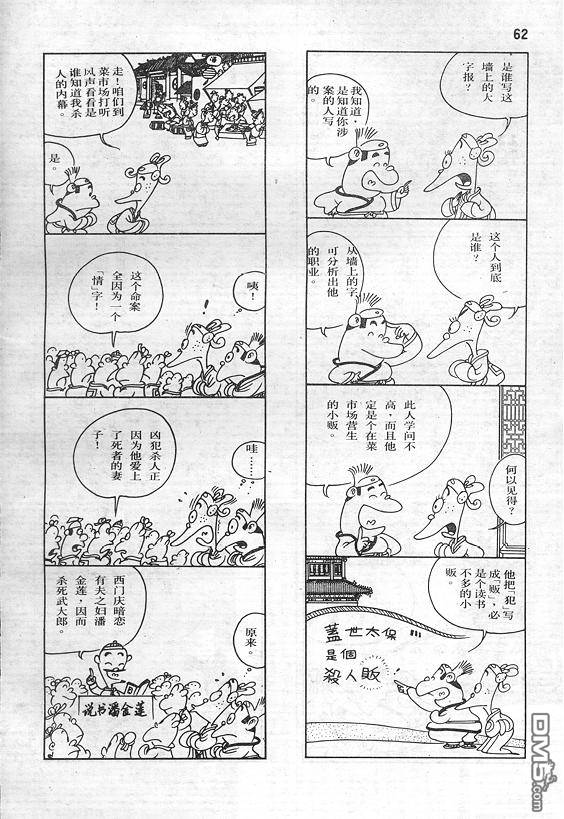 62
是谁写这
墙上的大
字报？
我知道，
是知道你涉
案的人写
的。
这个人到底
是谁？
从墙上的字
可分析出他
的职业。
此人学问不
高，而且他
定是个在菜
市场营生
的小贩。
何以见得？
他把「犯」写
成「贩」，必
是个读书
不多的小
贩。
蓋世太保
是個
殺人販
走！咱们到
菜市场打听
风声看看是
谁知道我杀
人的内幕。
是。
咦！
这个命案
全因为一个
「情」字！
哇……
凶犯杀人正
因为他爱上
了死者的妻
子！
原来。
西门庆暗恋
有夫之妇潘
金莲，因而
杀死武大郎。
说书潘金莲
DM5.com